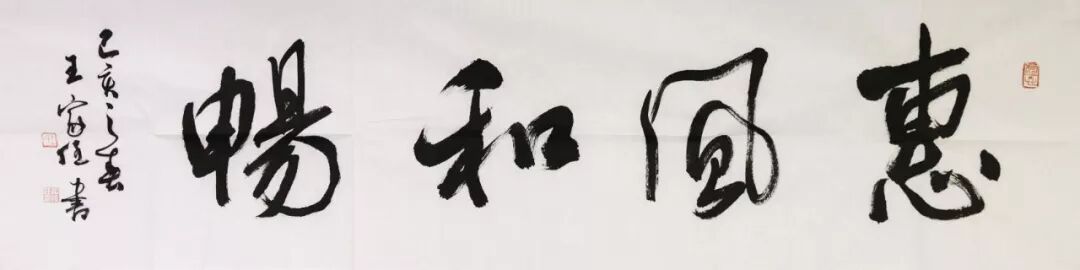 惠風和暢
己亥之春
王 書